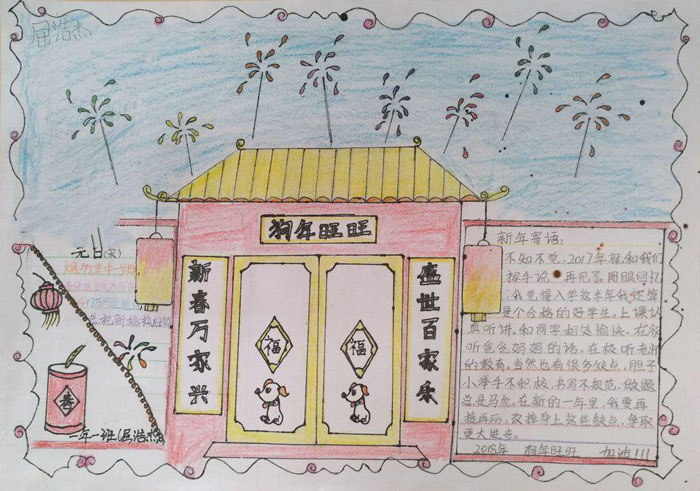 屈浩杰
狗年旺旺
新春万家兴
盛世百家乐
福
福
元日(宋)
爆竹声中一岁
总把新桃换旧
春
一年一班(屈浩杰)
新年寄语:
不知不觉,2017年就和我们
挥手说再见了。回眸回忆
,我觉得入学这半年我还算
是个合格的好学生,上课认
真听讲,和同学相处愉快,在家
听爸爸妈妈的话,在校听老师
的教育,当然也有很多缺点,胆子
小举手不积极,书写不规范,做题
总是马虎,在新的一年里,我要再
接再励,改掉身上这些缺点,争取
更大进步。
2018年 狗年旺旺 加油!!!